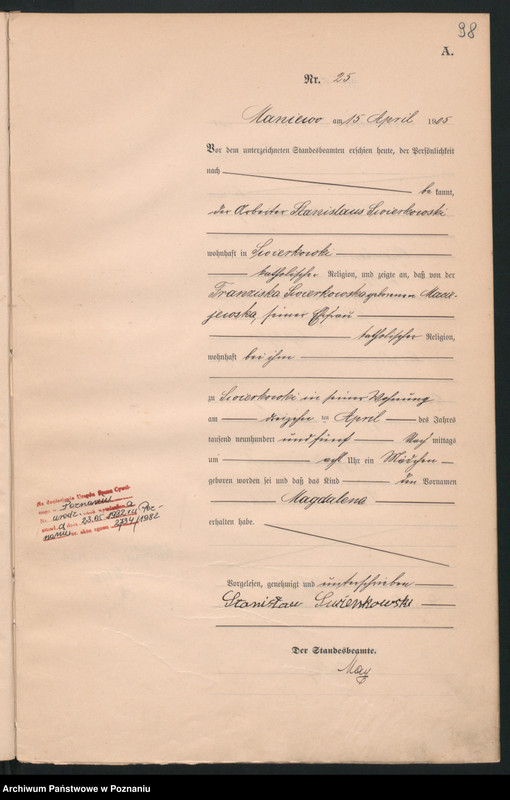 98
A.
Nr. 25
Maniewo am 15 April 1905
Vor dem unterzeichneten Standesbeamten erschien heute, der Persönlichkeit
nach
be kannt,
der Arbeiter Stanislaus Swierkowski
wohnhaft in Swierkowki
katholischer Religion, und zeigte an, daß von der
Franziska Swierkowska geborenen Macie-
jewska, seiner Ehefrau
katholischer Religion,
wohnhaft bei ihm
zu Swierkowki in seiner Wohnung
am dreizehn ten April des Jahres
tausend neunhundert und fünf Nach mittags
um acht Uhr ein Mädchen
geboren worden sei und daß das Kind den Vornamen
Magdalena
erhalten habe.
Na Urzędu Stanu Cywil-
nego w Poznaniu
urodz.
zmarł a dnia 23.05.1982 w Poz-
naniu nr. aktu zgonu 2734/1982
Vorgelesen, genehmigt und unterschrieben
Stanisław Swierkowski
Der Standesbeamte.
May
Archiwum Państwowe w Poznaniu